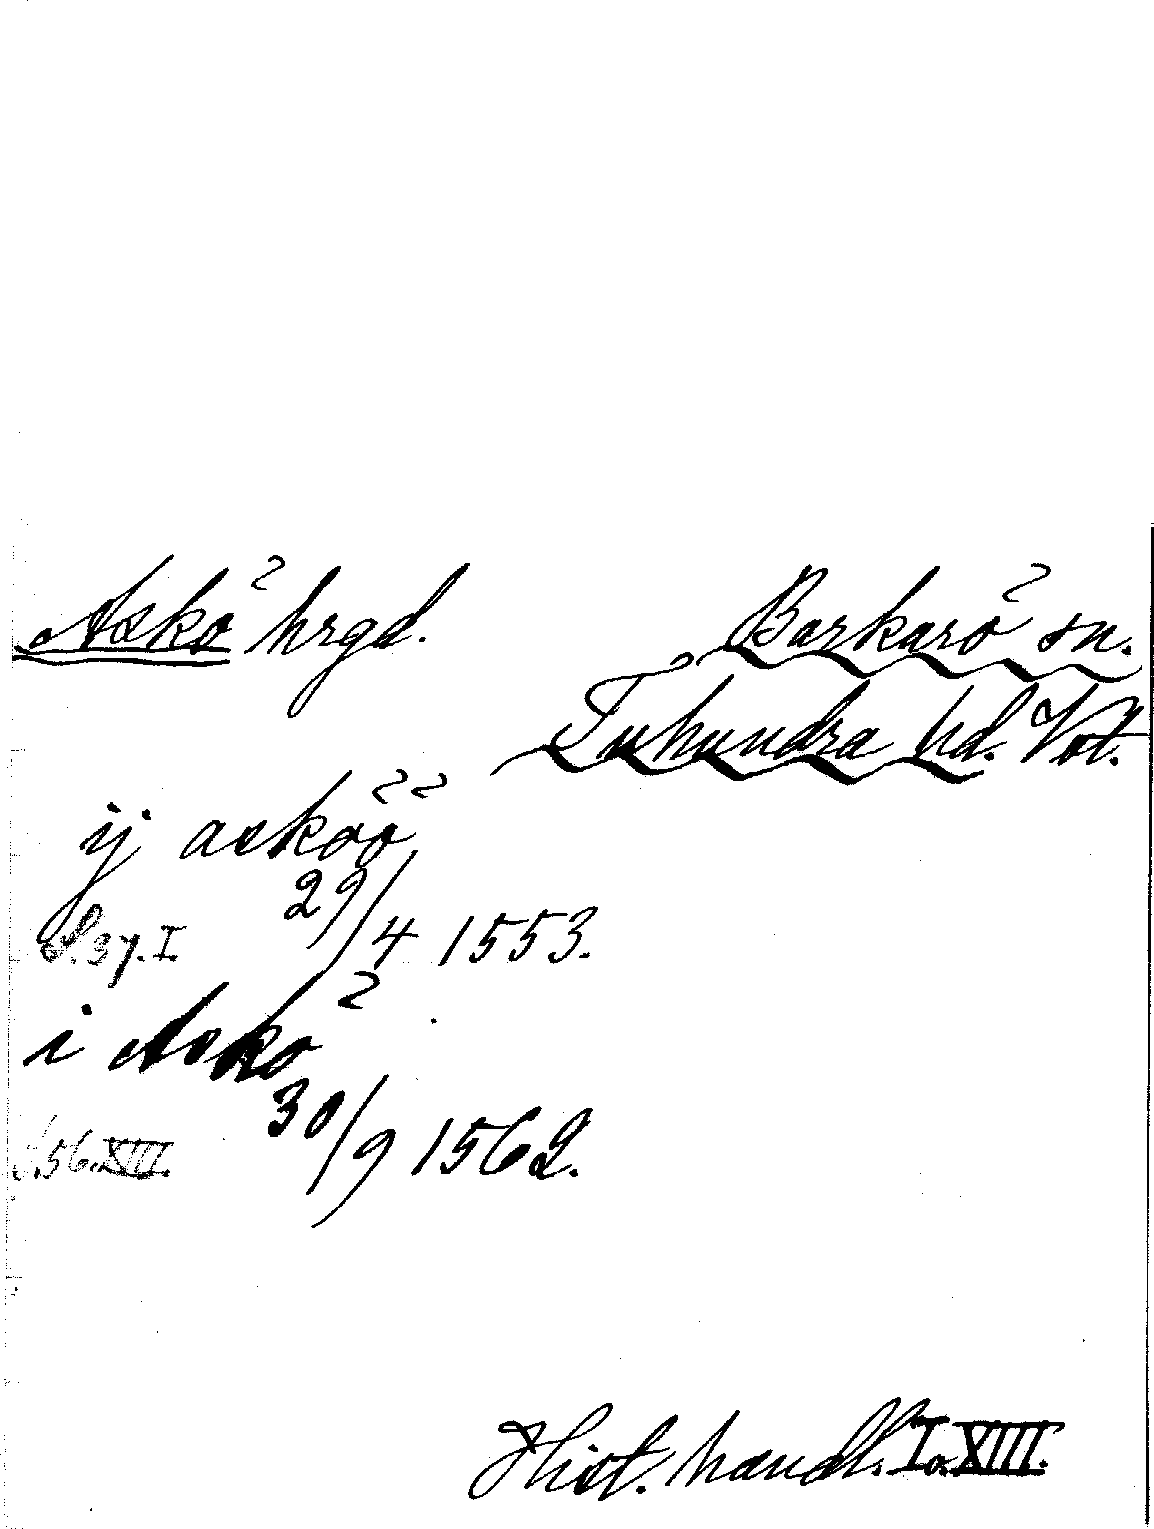 Askö hrgd. Barkarö sn.
Tuhundra hd. Vstl.
ij asköö
29/4 1553.
S. 37. I
i Askö
30/9 1562.
S. 56. XIII.
Hist. handl. I o. XIII.